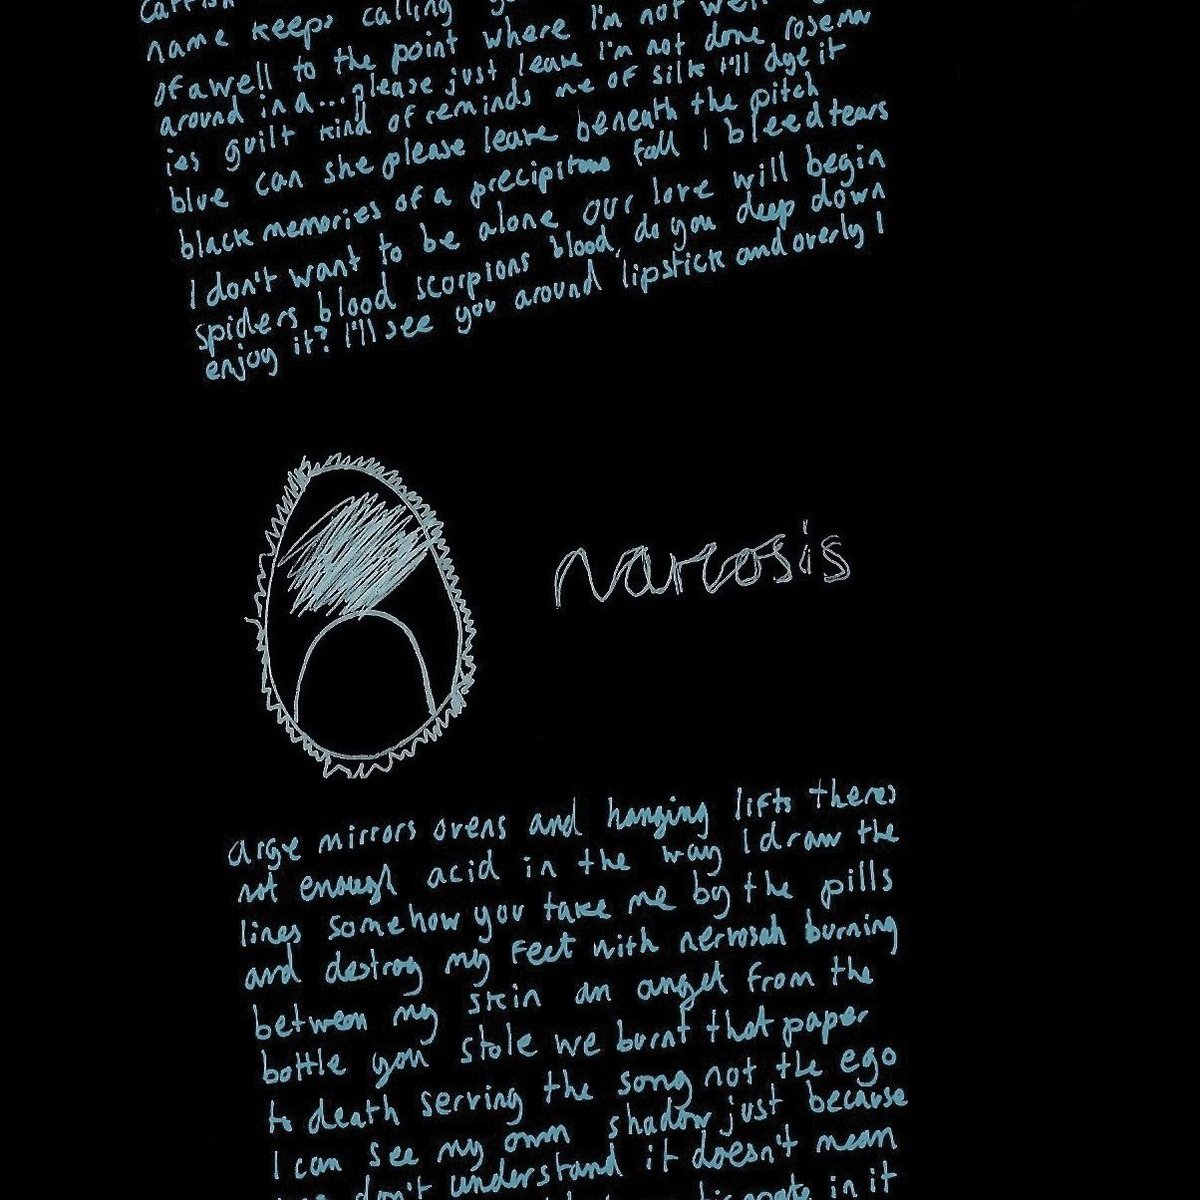 name keeps calling
of a well to the point where I'm not well
around in a... please just leave I'm not done rosemar
ies guilt kind of reminds me of silk I'll dye it
blue can she please leave beneath the pitch
black memories of a precipitous fall I bleed tears
I don't want to be alone our love will begin
spiders blood scorpions blood, do you deep down
enjoy it? I'll see you around lipstick and overly I
narcosis
arge mirrors ovens and hanging lifts theres
not enough acid in the way I draw the
lines somehow you take me by the pills
and destroy my feet with nervosah burning
between my skin an angel from the
bottle you stole we burnt that paper
to death serving the song not the ego
I can see my own shadow just because
don't understand it doesn't mean
in it